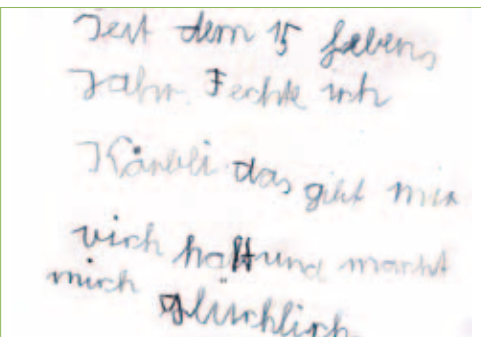 Seit dem 15 Lebens
Jahr. Fechte ich
Körbli das gibt mir
vich halt und macht
mich glüchlich